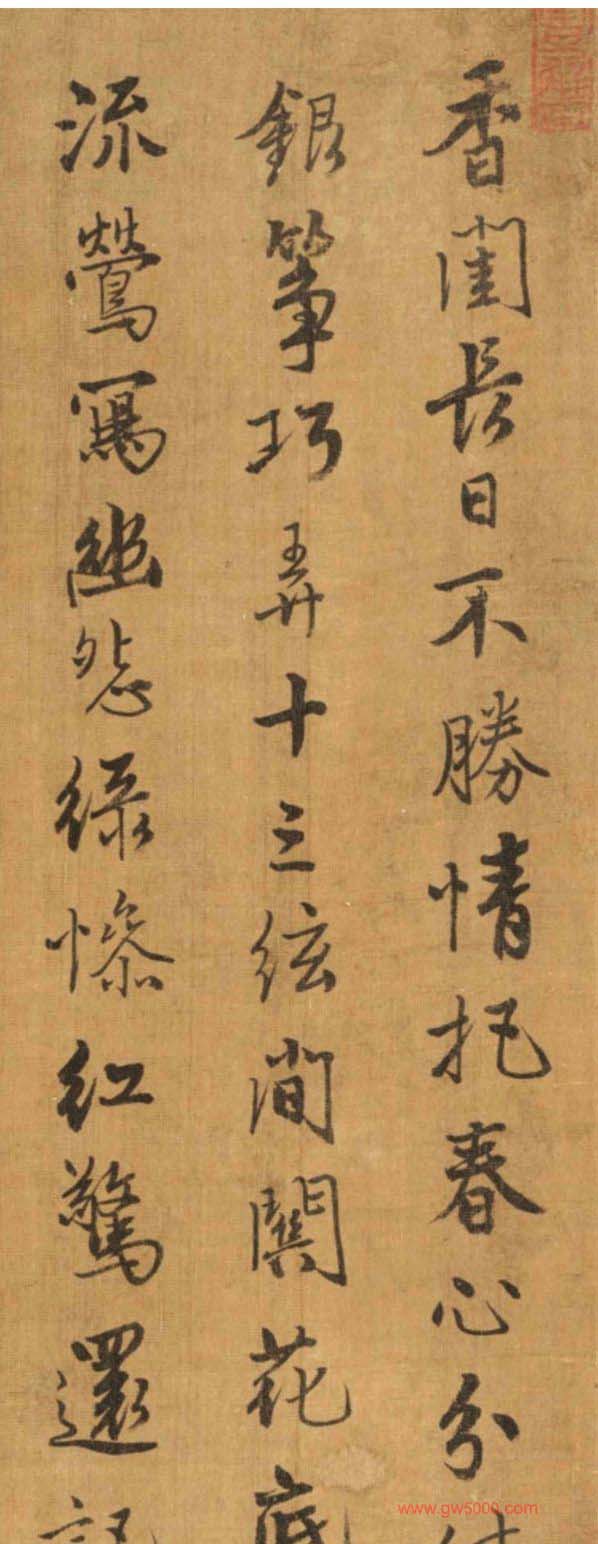 香閨長日不勝情把春心分付
銀箏巧弄十三絃間關花底
流鶯罵幽愁綠慘紅驚還記
www.gw5000.com